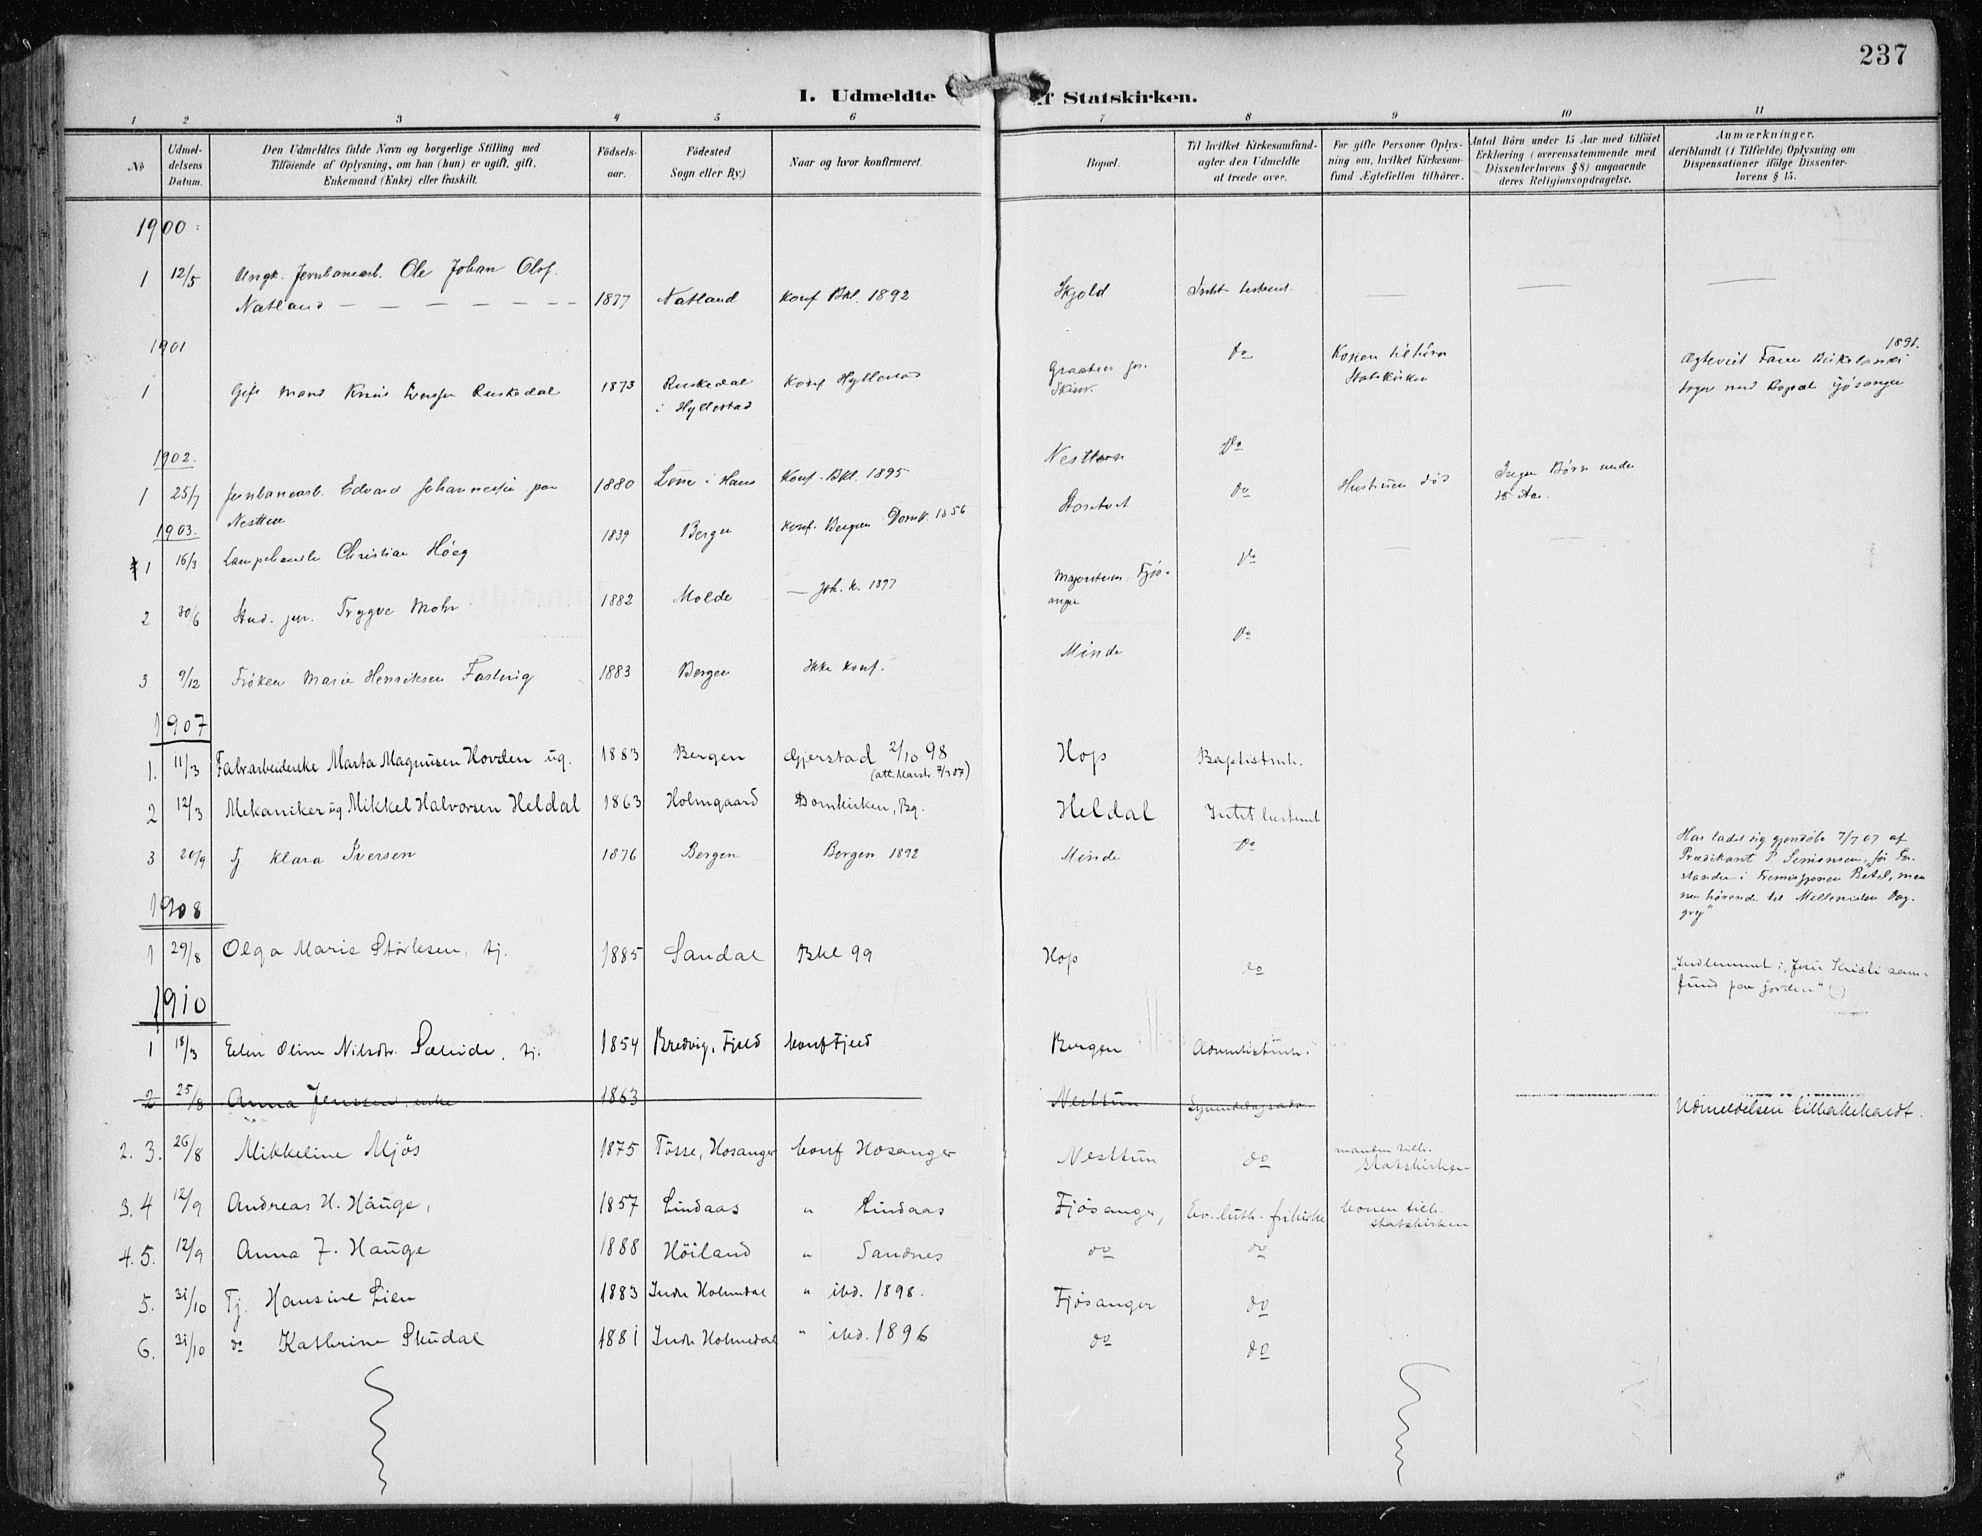 237
I. Udmeldte af Statskirken.
1 2 3 4 5 6 7 8 9 10 11
No
Udmel-
delsens
Datum.
Den Udmeldtes fulde Navn og borgerlige Stilling med
Tilføiende af Oplysning, om han (hun) er ugift, gift,
Enkemand (Enke) eller fraskilt.
Fødsels-
aar.
Fødested
Sogn eller By.)
Naar og hvor konfirmeret.
Bopæl.
Til hvilket Kirkesamfund-
agter den Udmeldte
at træde over.
For gifte Personer Oplys-
ning om, hvilket Kirkesam-
fund Ægtefællen tilhører.
Antal Børn under 15 Aar med tilføiet
Erklæring (overensstemmende med
Dissenterlovens § 8) angaaende
deres Religionsopdragelse.
Anmærkninger,
deriblandt (i Tilfælde) Oplysning om
Dispensationer ifølge Dissenter-
lovens § 15.
1900
1 12/5 Ungk. Jernbanearb. Ole Johan Olsf.
Natland — — — — — 1877 Natland konf Bkl. 1892 Skjold Intet bestemt. — — —
1901
1 Gift Mand Iversen Ruskedal 1873 Ruskedal
i Hyllestad konf Hyllestad do Konen tilhører
Statskirken 1891.
Ægteviet Fane Birkelands
Sogn med Bopæl Fjösanger
1902.
1 25/7 Jernbanearb. Edvard Johannessen paa
Nesttun 1880 i Haus Konf. Bkl. 1895 Nesttun Do
1903.
1 16/3 Christian Höeg 1839 Bergen Konf. Bergen Domk. 1856 Storetvet do Hustruen död Ingen Børn under
15 Aar.
2 30/6 Stud. jur. Trygve Mohr 1882 Molde — Joh. K. 1897 Fjös-
anger do — —
3 9/12 Fröken Marie Henriksen Fasting 1883 Bergen Ikke konf. Minde do
1907
1. 11/3 Fabrarbeiderske Marta Magnusen Hovden ug. 1883 Bergen Gjerstad 2/10 98
(att. 7/3 07) Hop Baptistmh.
2 12/3 Mekaniker ug. Mikkel Halvorsen Heldal 1863 Holmgaard Domkirken, Bg. Heldal Intet bestemt
3 20/9 Tj Klara Iversen 1876 Bergen Bergen 1892 Minde do Har ladet sig gjendöbe 7/7 07 af
Prædikant P. Simonsen, för For-
stander i Betel, men
nu hørende til Dag-
gry"
1908
1 29/8 Olga Marie Störksen, tj. 1885 Sandal Bkl 99 Hop do "Indlemmet i, Jesu Kristi sam-
fund paa jorden"
1910
1 18/3 Elen Oline Nilsdr. , tj. 1854 Bredvig, Fjeld konf Fjeld Bergen Adventistmh.
2 25/8 Anna Jenssen, enke 1863 Nesttun Syvendedagsadv. Udmeldelsen tilbakekaldt.
2. 3. 26/8 Mikkeline Mjös 1875 Tösse, Hosanger konf Hosanger Nesttun do manden tilh.
statskirken
3. 4 12/9 Andreas H. Hauge, 1857 Lindaas " Lindaas Fjösanger, Ev. luth. frikirke konen tilh.
statskirken
4. 5. 12/9 Anna J. Hauge 1888 Höiland " Sandnes do do
5. 31/10 Tj. Hansine Lien 1883 Indre Holmedal " ibd. 1898. Fjösanger do
6. 31/10 do Kathrine Skudal 1881 Indre Holmedal " ibd. 1896 do do